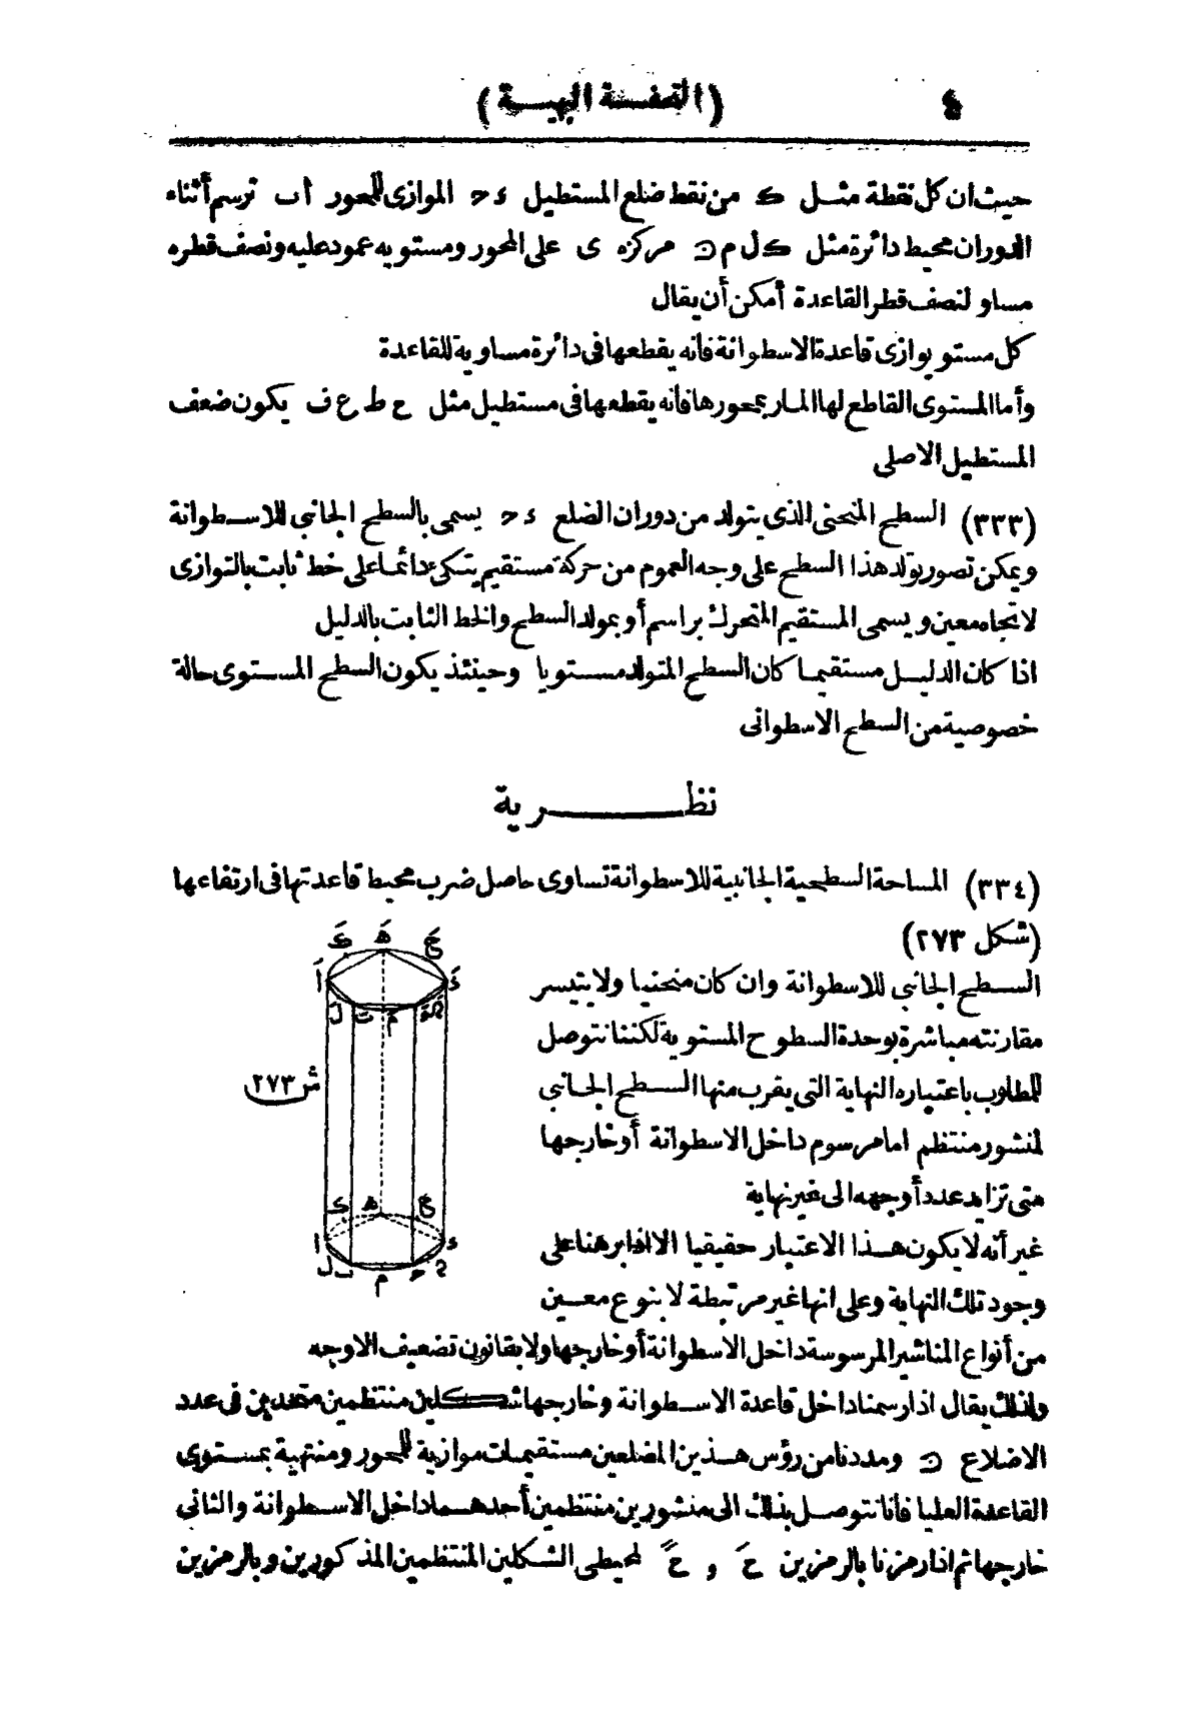 (التحفة البهية) ٤
حيث ان كل نقطة مثل ك من نقط ضلع المستطيل ء ح الموازى للمحور ا ب ترسم أثناء
الدوران محيط دائرة مثل ك ل م ن مركزه ى على المحور ومستويه عمود عليه ونصف قطره
مساو لنصف قطر القاعدة أمكن أن يقال
كل مستو يوازى قاعدة الاسطوانة فانه يقطعها فى دائرة مساوية للقاعدة
وأما المستوى القاطع لها المار بمحورها فانه يقطعها فى مستطيل مثل ح ط ع ف يكون ضعف
المستطيل الاصلى
(٣٣٣) السطح المنحنى الذى يتولد من دوران الضلع ء ح يسمى بالسطح الجانبى للاسطوانة
ويمكن تصور تولد هذا السطح على وجه العموم من حركة مستقيم يتكئ دائما على خط ثابت بالتوازى
لاتجاه معين ويسمى المستقيم المتحرك براسم أو بمولد السطح والخط الثابت بالدليل
اذا كان الدليل مستقيما كان السطح المتولد مستويا وحينئذ يكون السطح المستوى حالة
خصوصية من السطح الاسطوانى
نظرية
(٣٣٤) المساحة السطحية الجانبية للاسطوانة تساوى حاصل ضرب محيط قاعدتها فى ارتفاعها
(شكل ٢٧٣)
السطح الجانبى للاسطوانة وان كان منحنيا ولا يتيسر
مقارنته مباشرة بوحدة السطوح المستوية لكننا نتوصل
للمطلوب باعتباره النهاية التى يقرب منها السطح الجانبى
لمنشور منتظم اما مرسوم داخل الاسطوانة أو خارجها
متى تزايد عدد أوجهه الى غير نهاية
غير أنه لا يكون هذا الاعتبار حقيقيا الا اذا برهنا على
وجود تلك النهاية وعلى انها غير مرتبطة لا بنوع معين
من أنواع المناشير المرسوسة داخل الاسطوانة أو خارجها ولا بقانون تضعيف الاوجه
ولذلك يقال اذا رسمنا داخل قاعدة الاسطوانة وخارجها شكلين منتظمين متحدين فى عدد
الاضلاع ن ومددنا من رؤس هذين المضلعين مستقيمات موازية للمحور ومنتهية بمستوى
القاعدة العليا فاننا نتوصل بذلك الى منشورين منتظمين أحدهما داخل الاسطوانة والثانى
خارجها ثم اذا رمزنا بالرمزين حَ و حً لمحيطى الشكلين المنتظمين المذكورين وبالرمزين
كَ هَ حَ
اَ ءَ
ل ب م
ش ٢٧٣
ك ه ع
ا ء
ل ب م ح